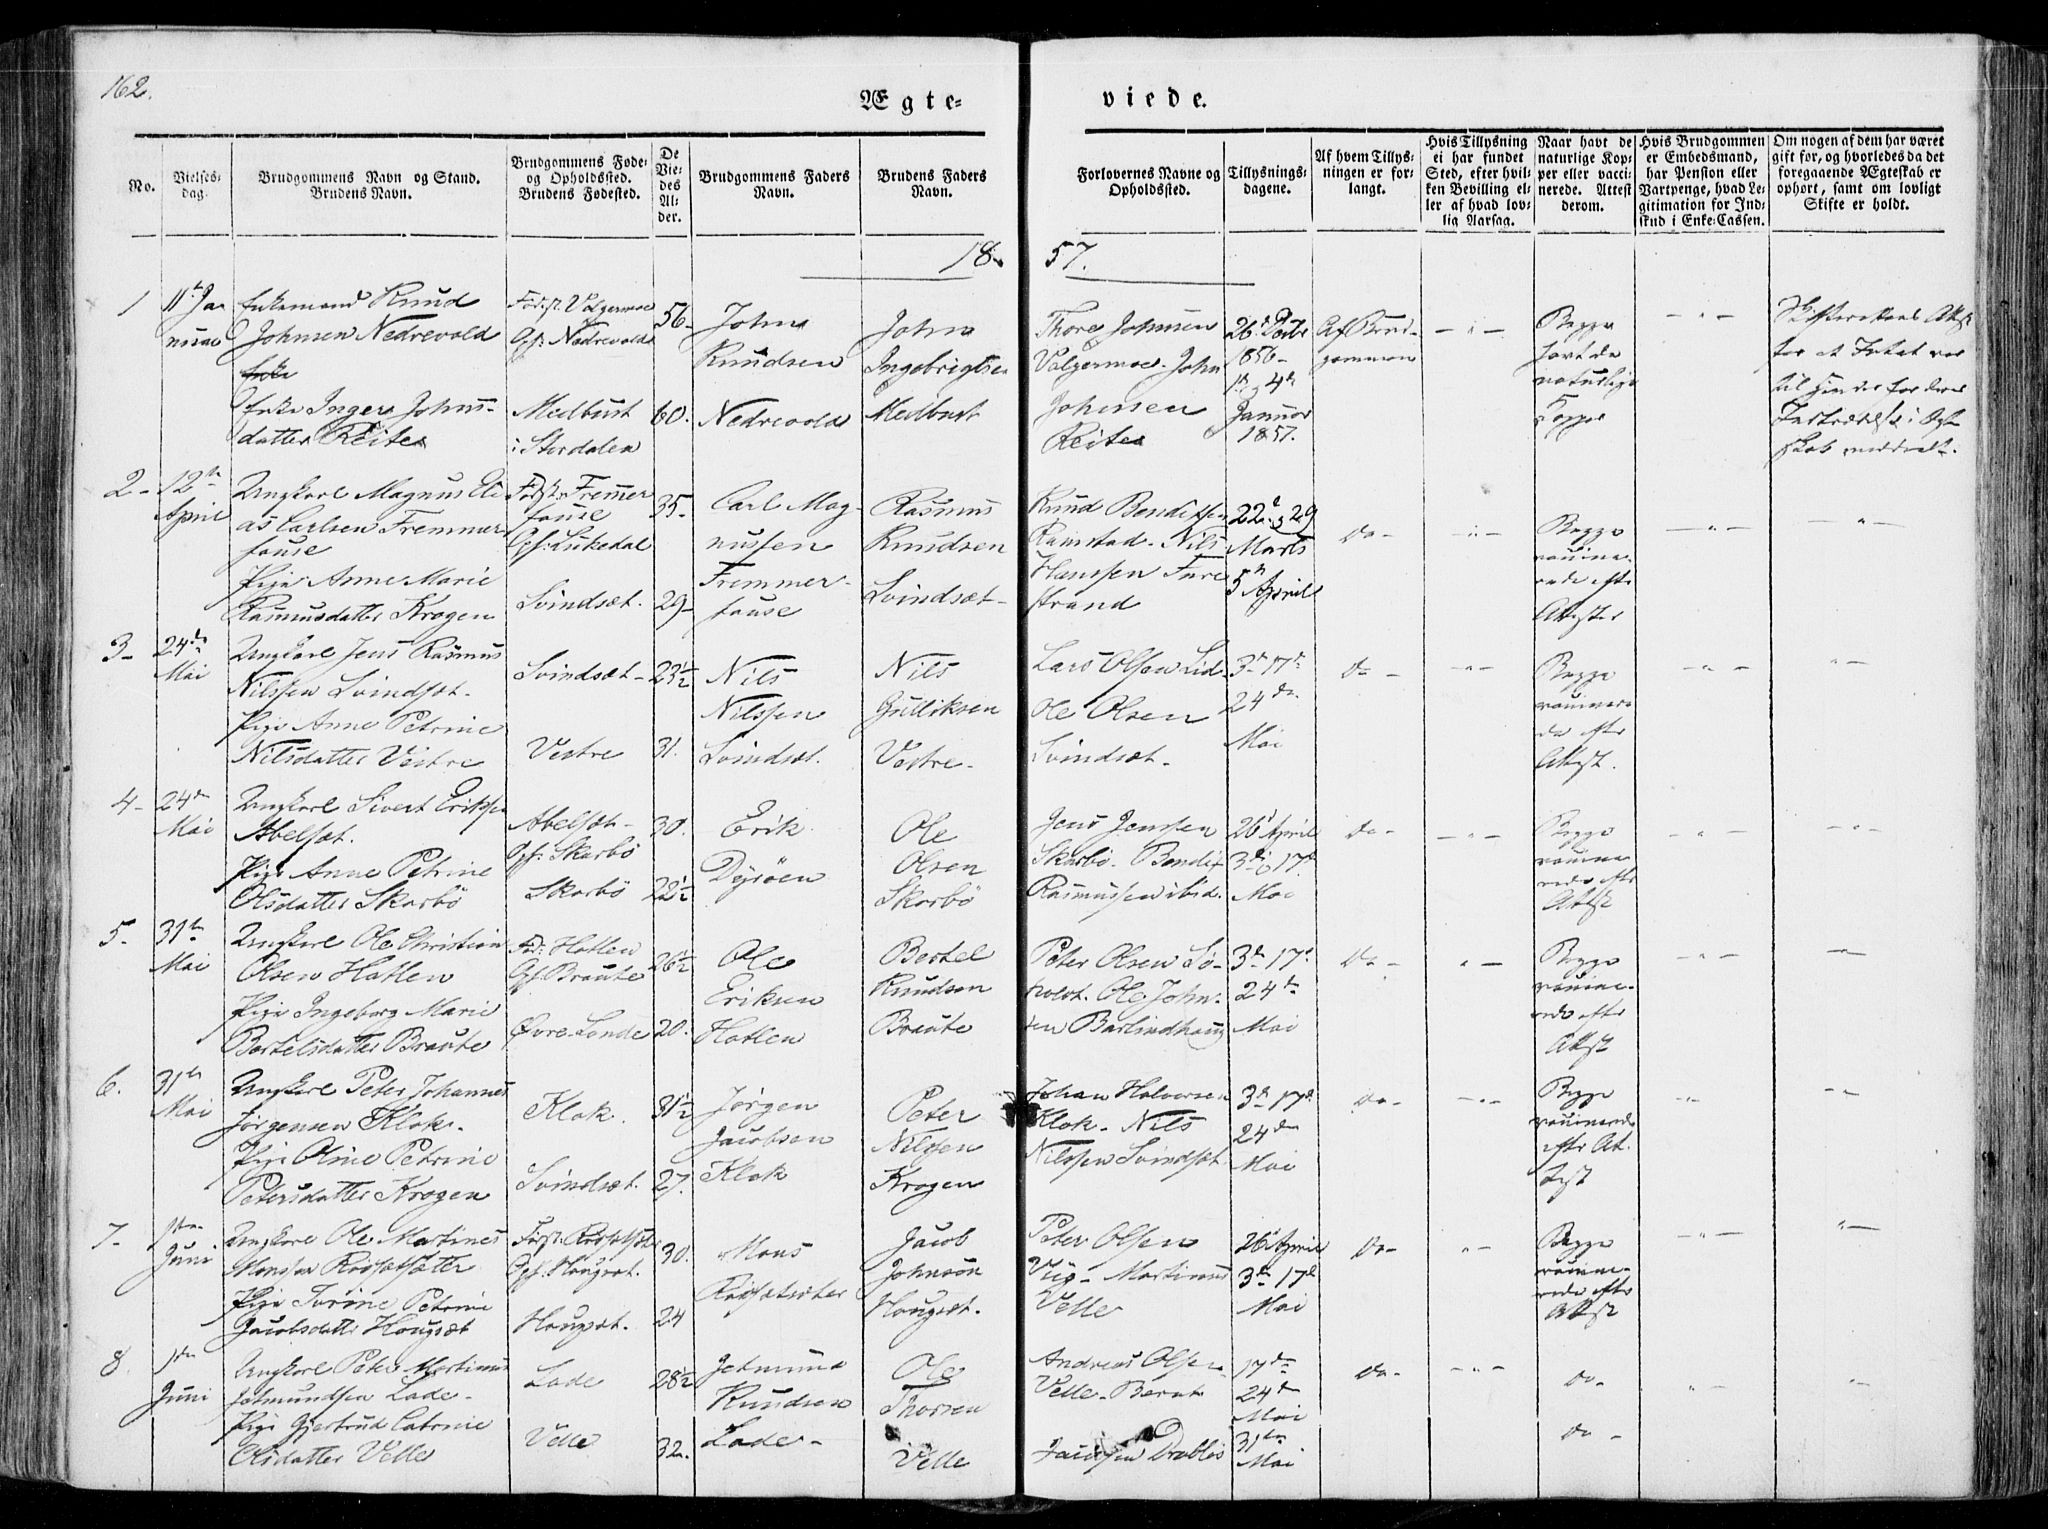 162.
Ægte-
viede.
No.
Vielses-
dag.
Brudgommens Navn og Stand.
Brudens Navn.
Brudgommens Føde-
og Opholdsted.
Brudens Fødested.
De
Vie-
des
Al-
der.
Brudgommens Faders
Navn.
Brudens Faders
Navn.
Forlovernes Navne og
Opholdsted.
Tillysnings-
dagene.
Af hvem Tillys-
ningen er for-
langt.
Hvis Tillysning
ei har fundet
Sted, efter hvil-
ken Bevilling el-
ler af hvad lov-
lig Aarsag.
Naar havt de
naturlige Kop-
per eller vacci-
nerede. Attest
derom.
Hvis Brudgommen
er Embedsmand,
har Pension eller
Vartpenge, hvad Le-
gitimation for Ind-
skud i Enke-Cassen.
Om nogen af dem har været
gift før, og hvorledes da det
foregaaende Ægteskab er
ophørt, samt om lovligt
Skifte er holdt.
18
57.
1
11te Ja-
nuar
Enkemand Knud
Johnsen Nedrevold
Enke
Enke Inger Johns-
datter Reite
Født Valgermoe
Opf. Nedrevold
Medbust
i Stordalen
56
60.
John
Knudsen
Nedrevold
John
Ingebrigtsen
Medbust
Thore Johnsen
Valgermoe. John
Johnsen
Reite
26de Decbr
1856
1te 4de
Januar
1857.
Af Brud-
gommen
Begge
havt de
naturlige
Kopper
Skifterettens Attest
for at Intet var
til Hinder for deres
Indtrædelse i Ægte-
skab
2
12te
April
Ungkarl Magnus Eli
as Carlsen Fremmer
fause
Pige Anne Marie
Rasmusdatter Krogen
Født Fremmer
fause
Opf. Likedal
Svindsæt.
35
29
Carl Mag-
nussen
Fremmer-
fause
Rasmus
Knudsen
Svindsæt
Knud Bendixen
Ramstad. Nils
Hanssen Fure
strand
22de 29
Marts
5te April
Do
Begge
vaccine-
rede efter
Attester
3
24de
Mai
Ungkarl Jens Rasmus
Nilssen Svindsæt
Pige Anne Petrine
Nilsdatter Vestre
Svindsæt
Vestre
23½
31.
Nils
Nilssen
Svindsæt.
Nils
Gulliksen
Vestre
Lars Olsen Lid
Ole Olsen
Svindsæt
3de 17de
24de
Mai
Do
Begge
vaccinere
de efter
Attest.
4
24de
Mai
Ungkarl Sivert Eriksen
Abelsæt.
Pige Anne Petrine
Olsdatter Skarbö
Abelsæt
Opf. Skarbö
Skarbö
30.
22½
Erik
Dyröen
Ole
Olsen
Skarbö
Jens Jenssen
Skarbö. Bendix
Rasmussen ibid.
26de April
3de 17de
Mai
Do
Begge
vaccine
rede efter
Attest
5
31te
Mai
Ungkarl Ole Christian
Olsen Hatlen
Pige Ingeborg Marie
Bertelsdatter Braute
Fød: Hatlen
Opf. Braute
Øvre-Lande
26½
20.
Ole
Eriksen
Hatlen
Bertel
Knudsen
Braute
Peter Olsen Sö-
holdt. Ole John-
sen Barlindhaug
3de 17de
24de
Mai
Do
Begge
vaccine-
rede efter
Attest
6.
31te
Mai
Ungkarl Peter Johannes
Jørgensen Klok.
Pige Oline Petrine
Petersdatter Krogen
Klok
Svindsæt.
31½
27.
Jørgen
Jacobsen
Klok
Peter
Nilssen
Krogen
Johan Halvorsen
Klok. Nils
Nilssen Svindsæt
3de 17de
24de
Mai
Do
Begge
vaccinerede
efter At-
test
7
1ste
Juni
Ungkarl Ole Martines
Monsen
Pige Turine Petrine
Jacobsdatter Hougsæt
Opf. Hougsæt.
Hougsæt.
30.
24
Mons
Jacob
Johnsen
Hougsæt.
Peter Olsen
Viig. Martinus
Velle
26de April
3de 17de
Mai
Do
Begge
vaccine-
rede efter
Attest
8.
1ste
Juni
Ungkarl Peter Martinus
Jetmundsen Lade
Pige Gjertrud Catrine
Olsdatter Velle
Lade
Velle
28½
32.
Jetmund
Knudsen
Lade
Ole
Thorsen
Velle
Andreas Olsen
Velle. Bernt
Jacobsen Drabløs
17de
24de
Mai
31te
Mai
Do
Do
Do